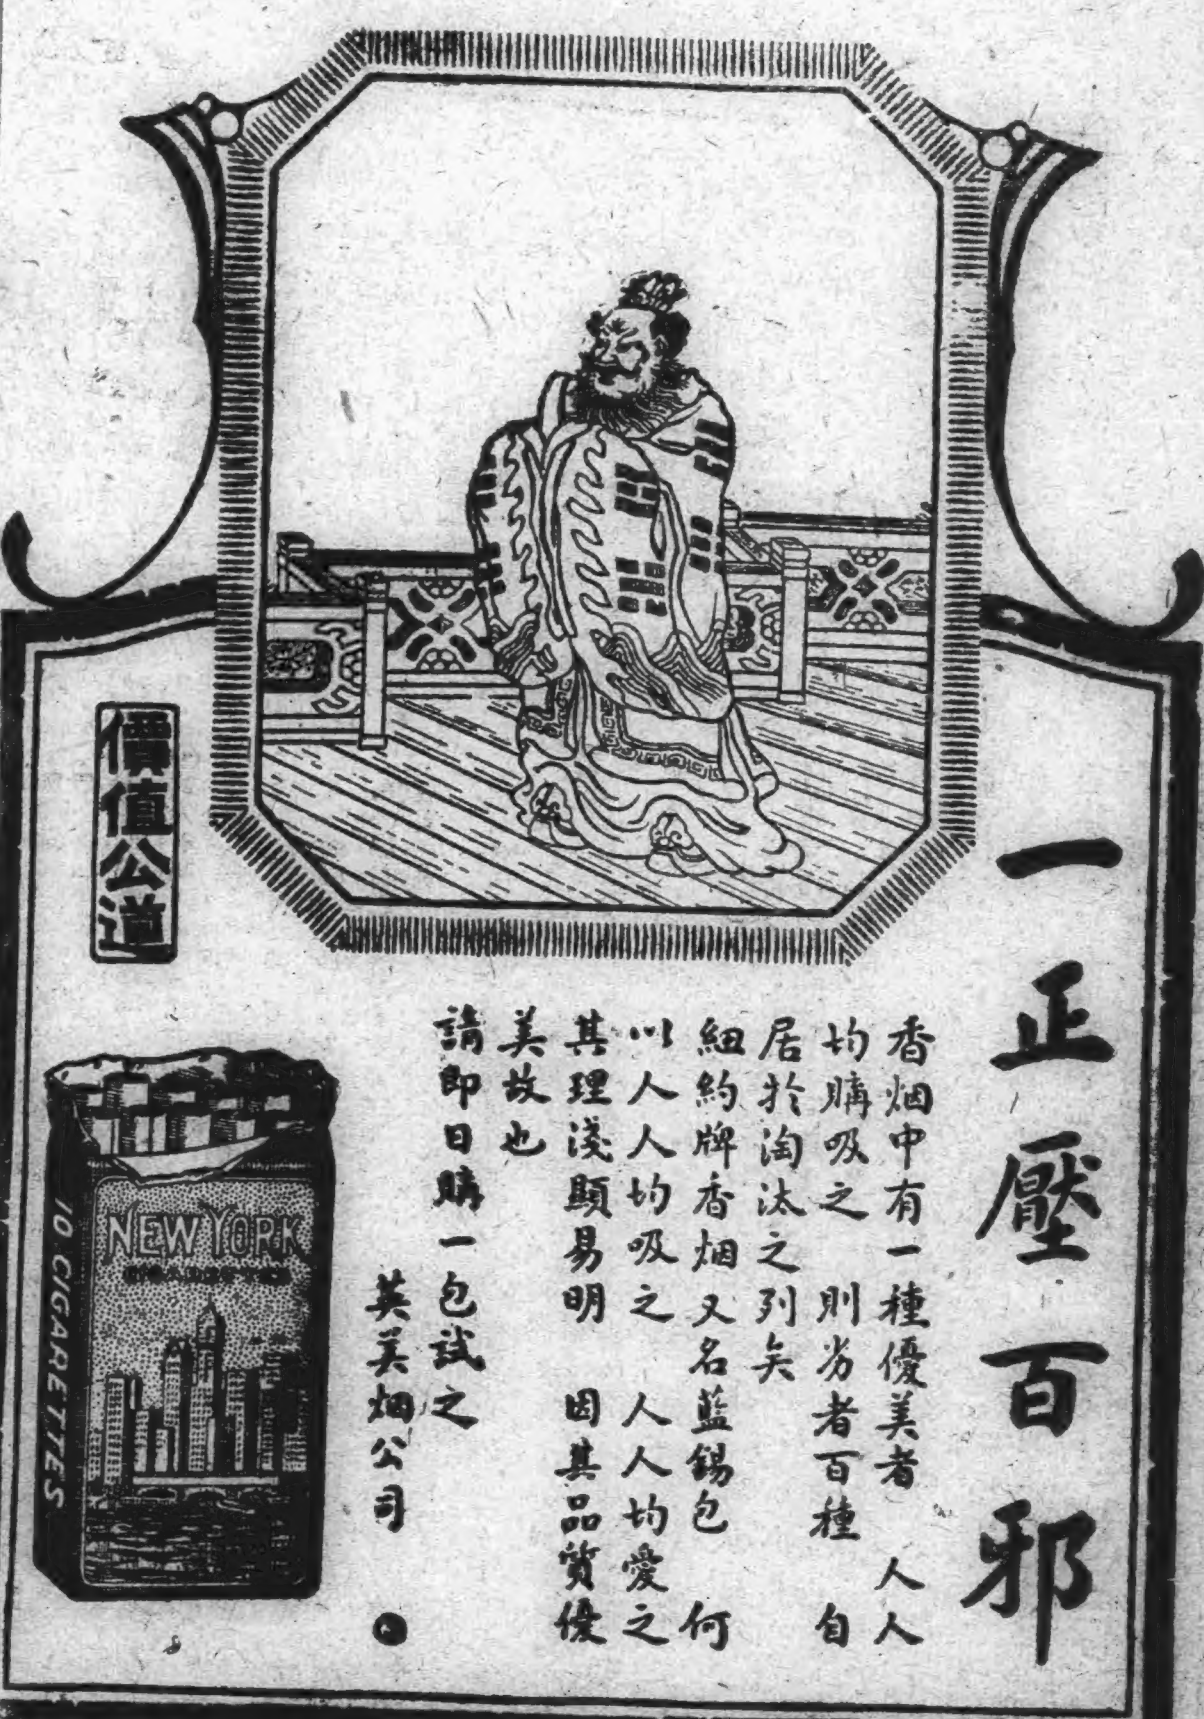 一正壓百邪
香烟中有一種優美者 人人
均購吸之 則劣者百種 自
居於淘汰之列矣
紐約牌香烟又名藍錫包 何
以人人均吸之 人人均愛之
其理淺顯易明 因其品質優
美故也
請即日購一包試之
英美烟公司
價值公道
NEW YORK
10 CIGARETTES